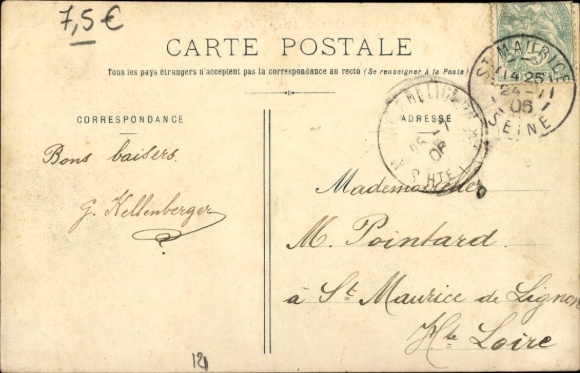 7,5€
CARTE POSTALE
Tous les pays étrangers n'acceptent pas la correspondance au recto (Se renseigner à la Poste)
CORRESPONDANCE
ADRESSE
ST MAURICE
14 25
24 - 11
06
SEINE
06
Bons baisers
G. Kellenberger
Mademoiselle
M. Pointard
à St Maurice de Lignon
Hte Loire
121